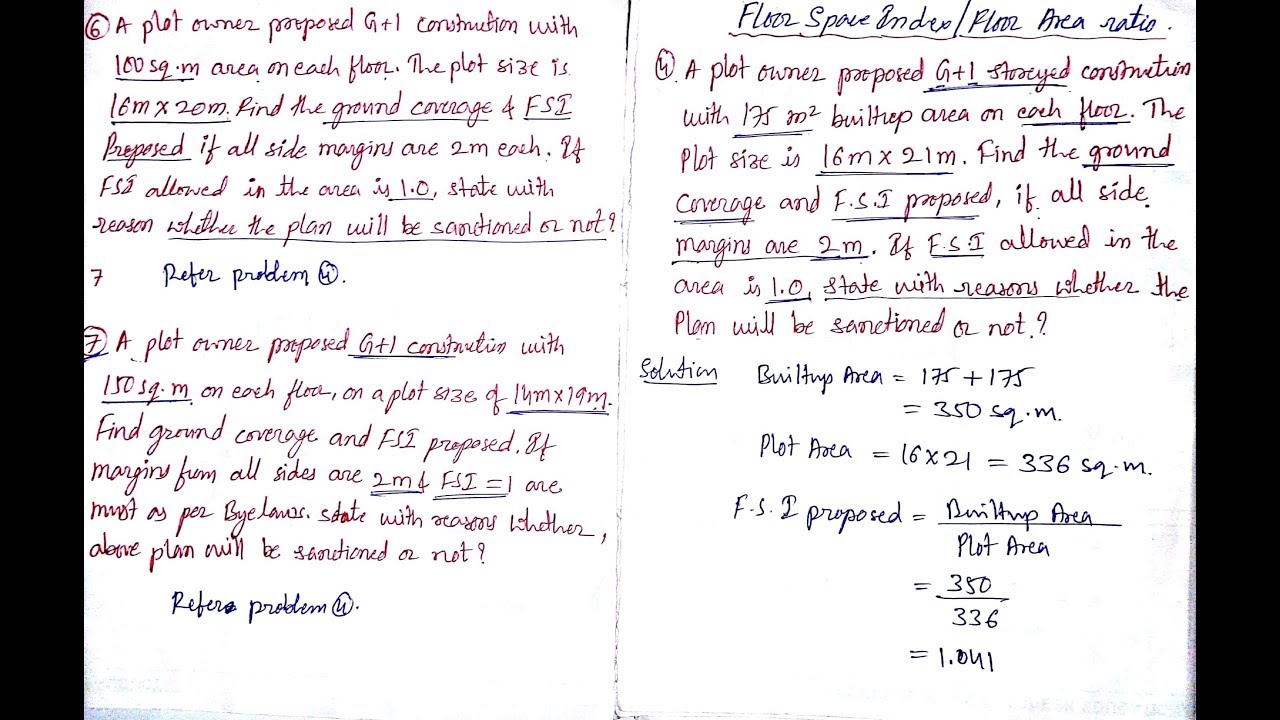 ⑥ A plot owner proposed G+1 construction with
100 sq.m area on each floor. The plot size is
16m x 20m. Find the ground coverage & FSI
Proposed if all side margins are 2m each. If
FSI allowed in the area is 1.0, state with
reason whether the plan will be sanctioned or not?
7 Refer problem ④.
⑦ A plot owner proposed G+1 construction with
150 sq.m on each floor, on a plot size of 14m x 19m.
Find ground coverage and FSI proposed. If
margins from all sides are 2m & FSI = 1 are
must as per Byelaws. state with reasons whether,
above plan will be sanctioned or not?
Refer problem ④.
Floor Space Index/Floor Area ratio.
④. A plot owner proposed G+1 storeyed construction
with 175 m² builtup area on each floor. The
Plot size is 16m x 21m. Find the ground
coverage and F.S.I proposed, if all side
margins are 2m. If F.S.I allowed in the
area is 1.0, state with reasons whether the
Plan will be sanctioned or not?
Solution Builtup Area = 175 + 175
= 350 sq.m.
Plot Area = 16 x 21 = 336 sq.m.
F.S.I proposed = Builtup Area
Plot Area
= 350
336
= 1.041